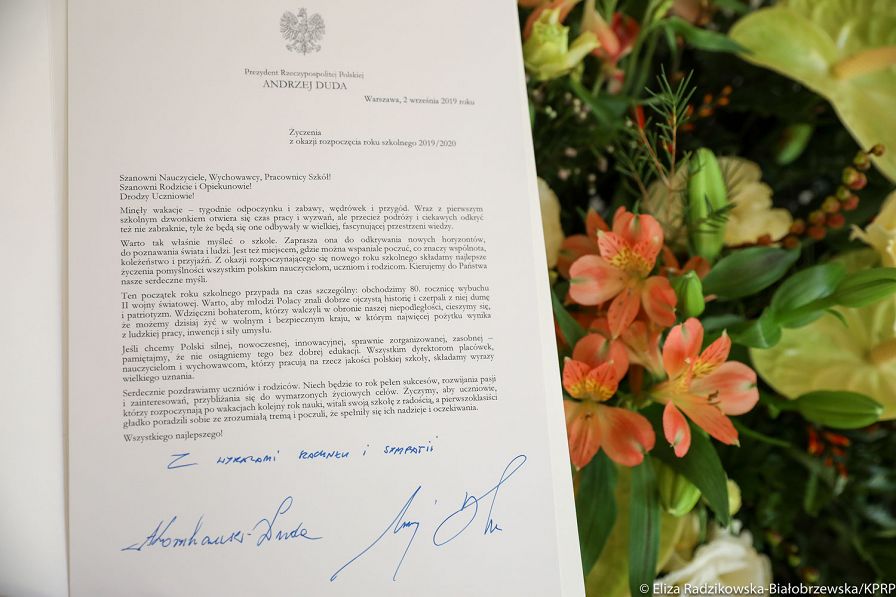 Prezydent Rzeczypospolitej Polskiej
ANDRZEJ DUDA
Warszawa, 2 września 2019 roku
Życzenia
z okazji rozpoczęcia roku szkolnego 2019/2020
Szanowni Nauczyciele, Wychowawcy, Pracownicy Szkół!
Szanowni Rodzice i Opiekunowie!
Drodzy Uczniowie!
Minęły wakacje – tygodnie odpoczynku i zabawy, wędrówek i przygód. Wraz z pierwszym
szkolnym dzwonkiem otwiera się czas pracy i wyzwań, ale przecież podróży i ciekawych odkryć
też nie zabraknie, tyle że będą się one odbywały w wielkiej, fascynującej przestrzeni wiedzy.
Warto tak właśnie myśleć o szkole. Zaprasza ona do odkrywania nowych horyzontów,
do poznawania świata i ludzi. Jest też miejscem, gdzie można wspaniale poczuć, co znaczy wspólnota,
koleżeństwo i przyjaźń. Z okazji rozpoczynającego się nowego roku szkolnego składamy najlepsze
życzenia pomyślności wszystkim polskim nauczycielom, uczniom i rodzicom. Kierujemy do Państwa
nasze serdeczne myśli.
Ten początek roku szkolnego przypada na czas szczególny: obchodzimy 80. rocznicę wybuchu
II wojny światowej. Warto, aby młodzi Polacy znali dobrze ojczystą historię i czerpali z niej dumę
i patriotyzm. Wdzięczni bohaterom, którzy walczyli w obronie naszej niepodległości, cieszymy się,
że możemy dzisiaj żyć w wolnym i bezpiecznym kraju, w którym najwięcej pożytku wynika
z ludzkiej pracy, inwencji i siły umysłu.
Jeśli chcemy Polski silnej, nowoczesnej, innowacyjnej, sprawnie zorganizowanej, zasobnej –
pamiętajmy, że nie osiągniemy tego bez dobrej edukacji. Wszystkim dyrektorom placówek,
nauczycielom i wychowawcom, którzy pracują na rzecz jakości polskiej szkoły, składamy wyrazy
wielkiego uznania.
Serdecznie pozdrawiamy uczniów i rodziców. Niech będzie to rok pełen sukcesów, rozwijania pasji
i zainteresowań, przybliżania się do wymarzonych życiowych celów. Życzymy, aby uczniowie,
którzy rozpoczynają po wakacjach kolejny rok nauki, witali swoją szkołę z radością, a pierwszoklasiści
gładko poradzili sobie ze zrozumiałą tremą i poczuli, że spełniły się ich nadzieje i oczekiwania.
Wszystkiego najlepszego!
Z WYRAZAMI SZACUNKU I SYMPATII
AKornhauser-Duda
© Eliza Radzikowska-Białobrzewska/KPRP